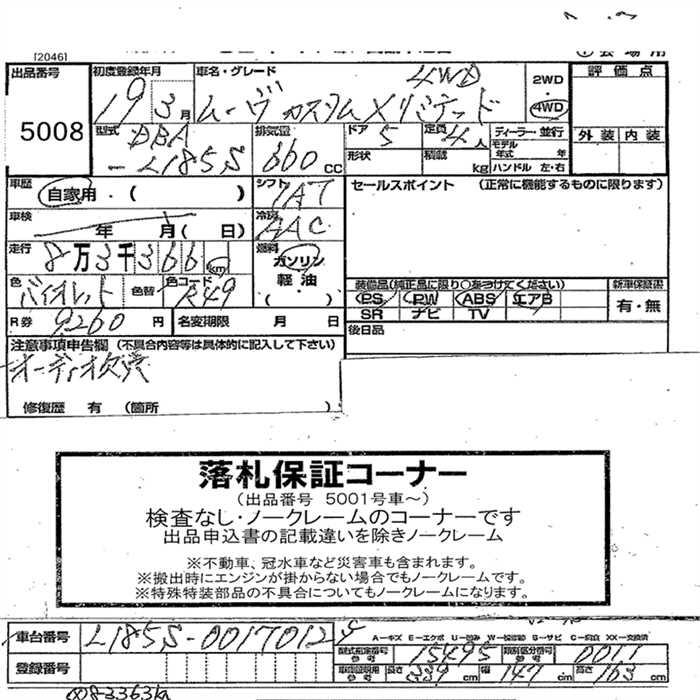 [2046]
出品番号
5008
初度登録年月
19 3月
車名・グレード
ムーヴ カスタム メモリアルエディション 4WD
2WD
・
4WD
評価点
外装 内装
型式
DBA
-L185S
排気量
660cc
ドア
5
定員
4人
ディーラー・並行
モデル年式 年
形状
積載 kg
ハンドル 左・右
車歴
自家用・( )
シフト
IAT
セールスポイント (正常に機能するものに限ります)
車検
年 月( 日)
冷房
AAC
走行
8万3千366km
燃料
ガソリン
軽油
・( )
色
バイオレット
色替
色コード
R49
装備品(純正品に限り○をつけてください)
新車保証書
PS PW ABS エアB
SR ナビ TV
有・無
R券
9260円
名変期限 月 日
後日品
注意事項申告欄 (不具合内容等は具体的に記入して下さい)
オーディオ欠品
修復歴 有 (箇所 )
落札保証コーナー
(出品番号 5001号車～)
検査なし・ノークレームのコーナーです
出品申込書の記載違いを除きノークレーム
※不動車、冠水車など災害車も含まれます。
※搬出時にエンジンが掛からない場合でもノークレームです。
※特殊特装部品の不具合についてもノークレームになります。
車台番号
L185S-0017012
A－キズ E－エクボ U－凹み S－サビ
型式指定番号 参考
15495
類別区分番号 参考
0011
登録番号
車両証明用 参考
長さ 339cm
幅 147cm
高さ 163cm